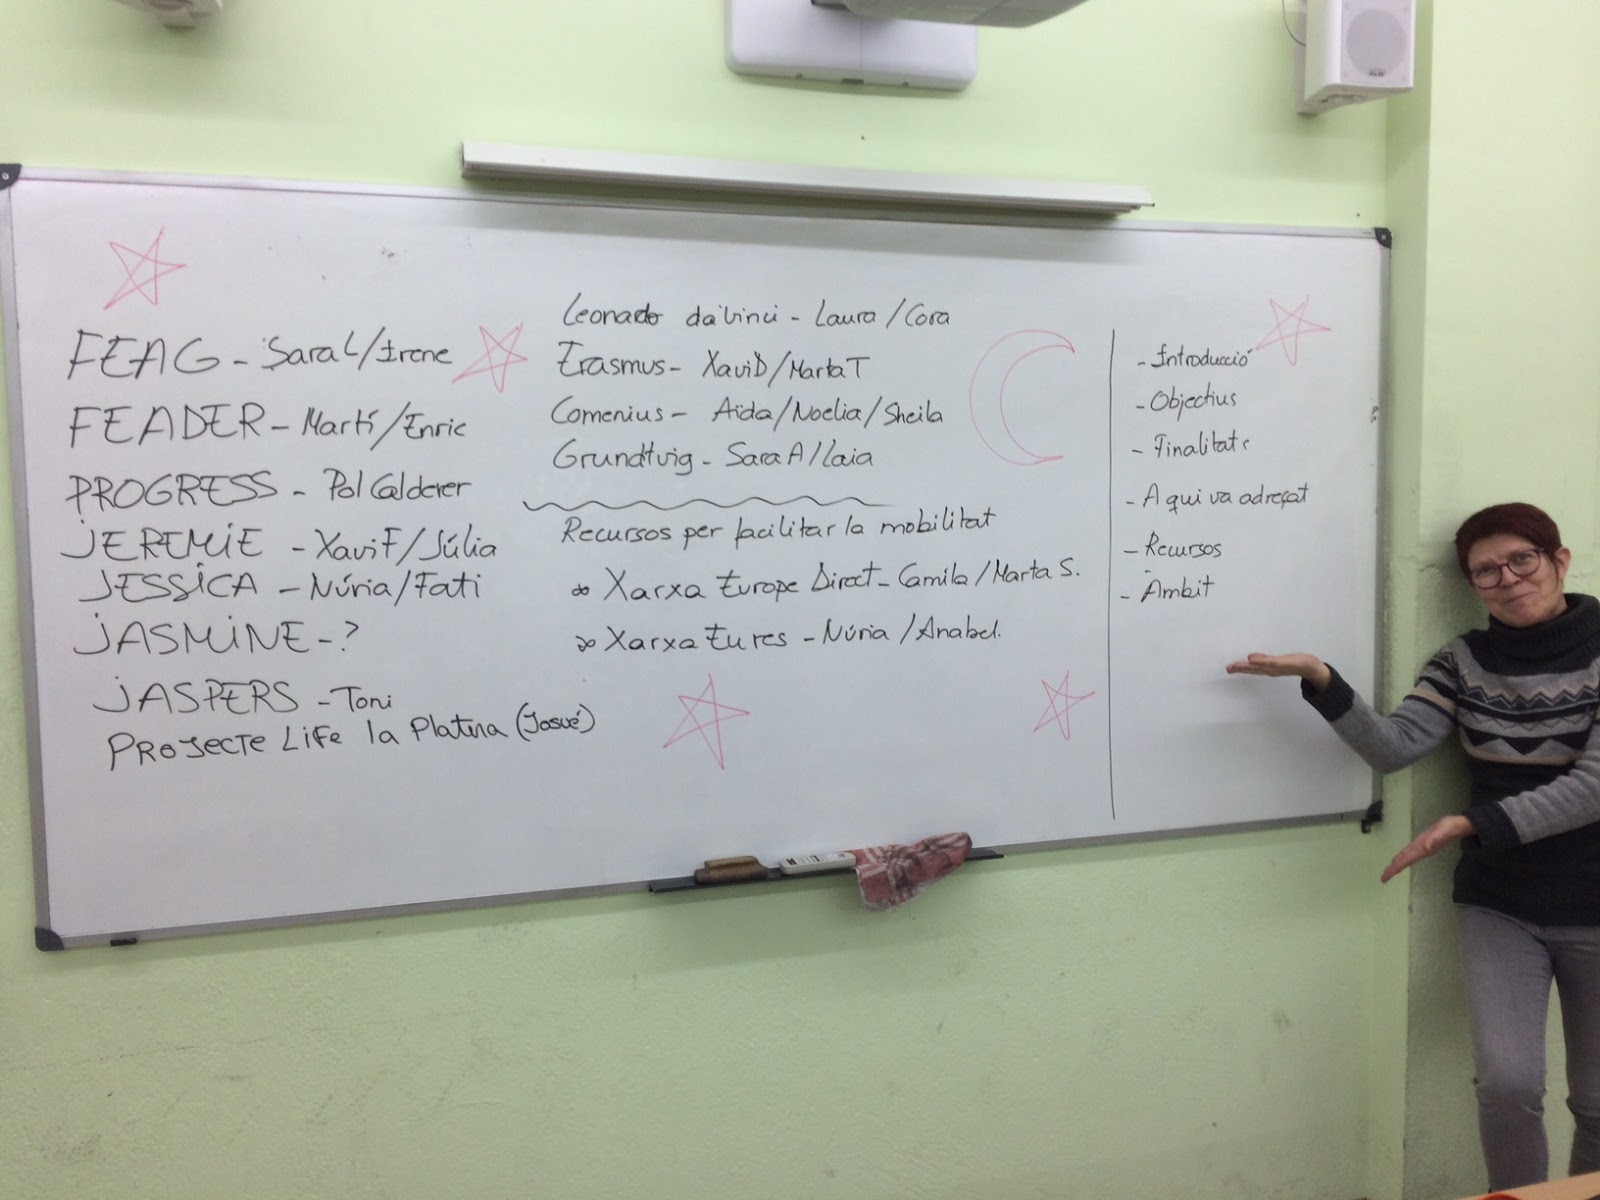 FEAG - Sara L/Irene
FEADER - Martí/Enric
PROGRESS - Pol Calderer
JEREMIE - Xavi F/Júlia
JESSICA - Núria/Fati
JASMINE - ?
JASPERS - Toni
PROJECTE LIFE la Platera (Josué)
Leonardo da Vinci - Laura/Cora
Erasmus - Xavi D/Marta T
Comenius - Aïda/Noelia/Sheila
Grundtvig - Sara A/Laia
Recursos per facilitar la mobilitat
Xarxa Europe Direct - Camila/Marta S.
Xarxa Eures - Núria/Anabel.
- Introducció
- Objectius
- Finalitats
- A qui va adreçat
- Recursos
- Àmbit